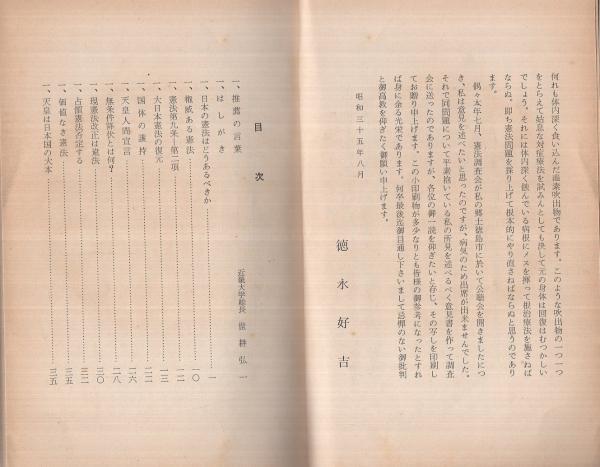 何れも体内深く食い込んだ温素吹出物であります。このような吹出物の一つ一つ
をとらえて姑息な対症療法を試みんとしても決して元の身体は回復はむつかしい
でしょう。それには体内深く蝕んでいる病根にメスを揮って根治療法を施さねば
ならぬ。即ち憲法問題を採り上げて根本的にやり直さねばならぬと思うのであり
ます。
偶々本年七月、憲法調査会が私の郷土徳島市に於いて公聴会を開きましたにつ
き、私は意見を述べたいと思ったのですが、病気のため出席が出来ませんでした。
それで同問題について平素抱いている私の所見を述べるべく意見書を作って調査
会に送ったのでありますが、各位の御一読を仰ぎたいと存じ、その写しを印刷し
てお贈り申上げます。この小印刷物が多少なりとも皆様の御参考になったとすれ
ば身に余る光栄であります。何卒最後迄御目通し下さいまして忌憚のない御批判
と御高教を仰ぎたく御願い申上げます。
昭和三十五年八月
徳永好吉
目次
一、推薦の言葉 近畿大学総長 世耕弘一
一、はしがき
一、日本の憲法はどうあるべきか 一
一、権威ある憲法 一〇
一、憲法第九条第二項 一二
一、大日本憲法の復元 一三
一、国体の護持 二二
一、天皇人間宣言 二六
一、無条件降伏とは何? 二八
一、現憲法改正は違法 三〇
一、占領憲法否定する 三二
一、価値なき憲法 三五
一、天皇は日本国の大本 三五